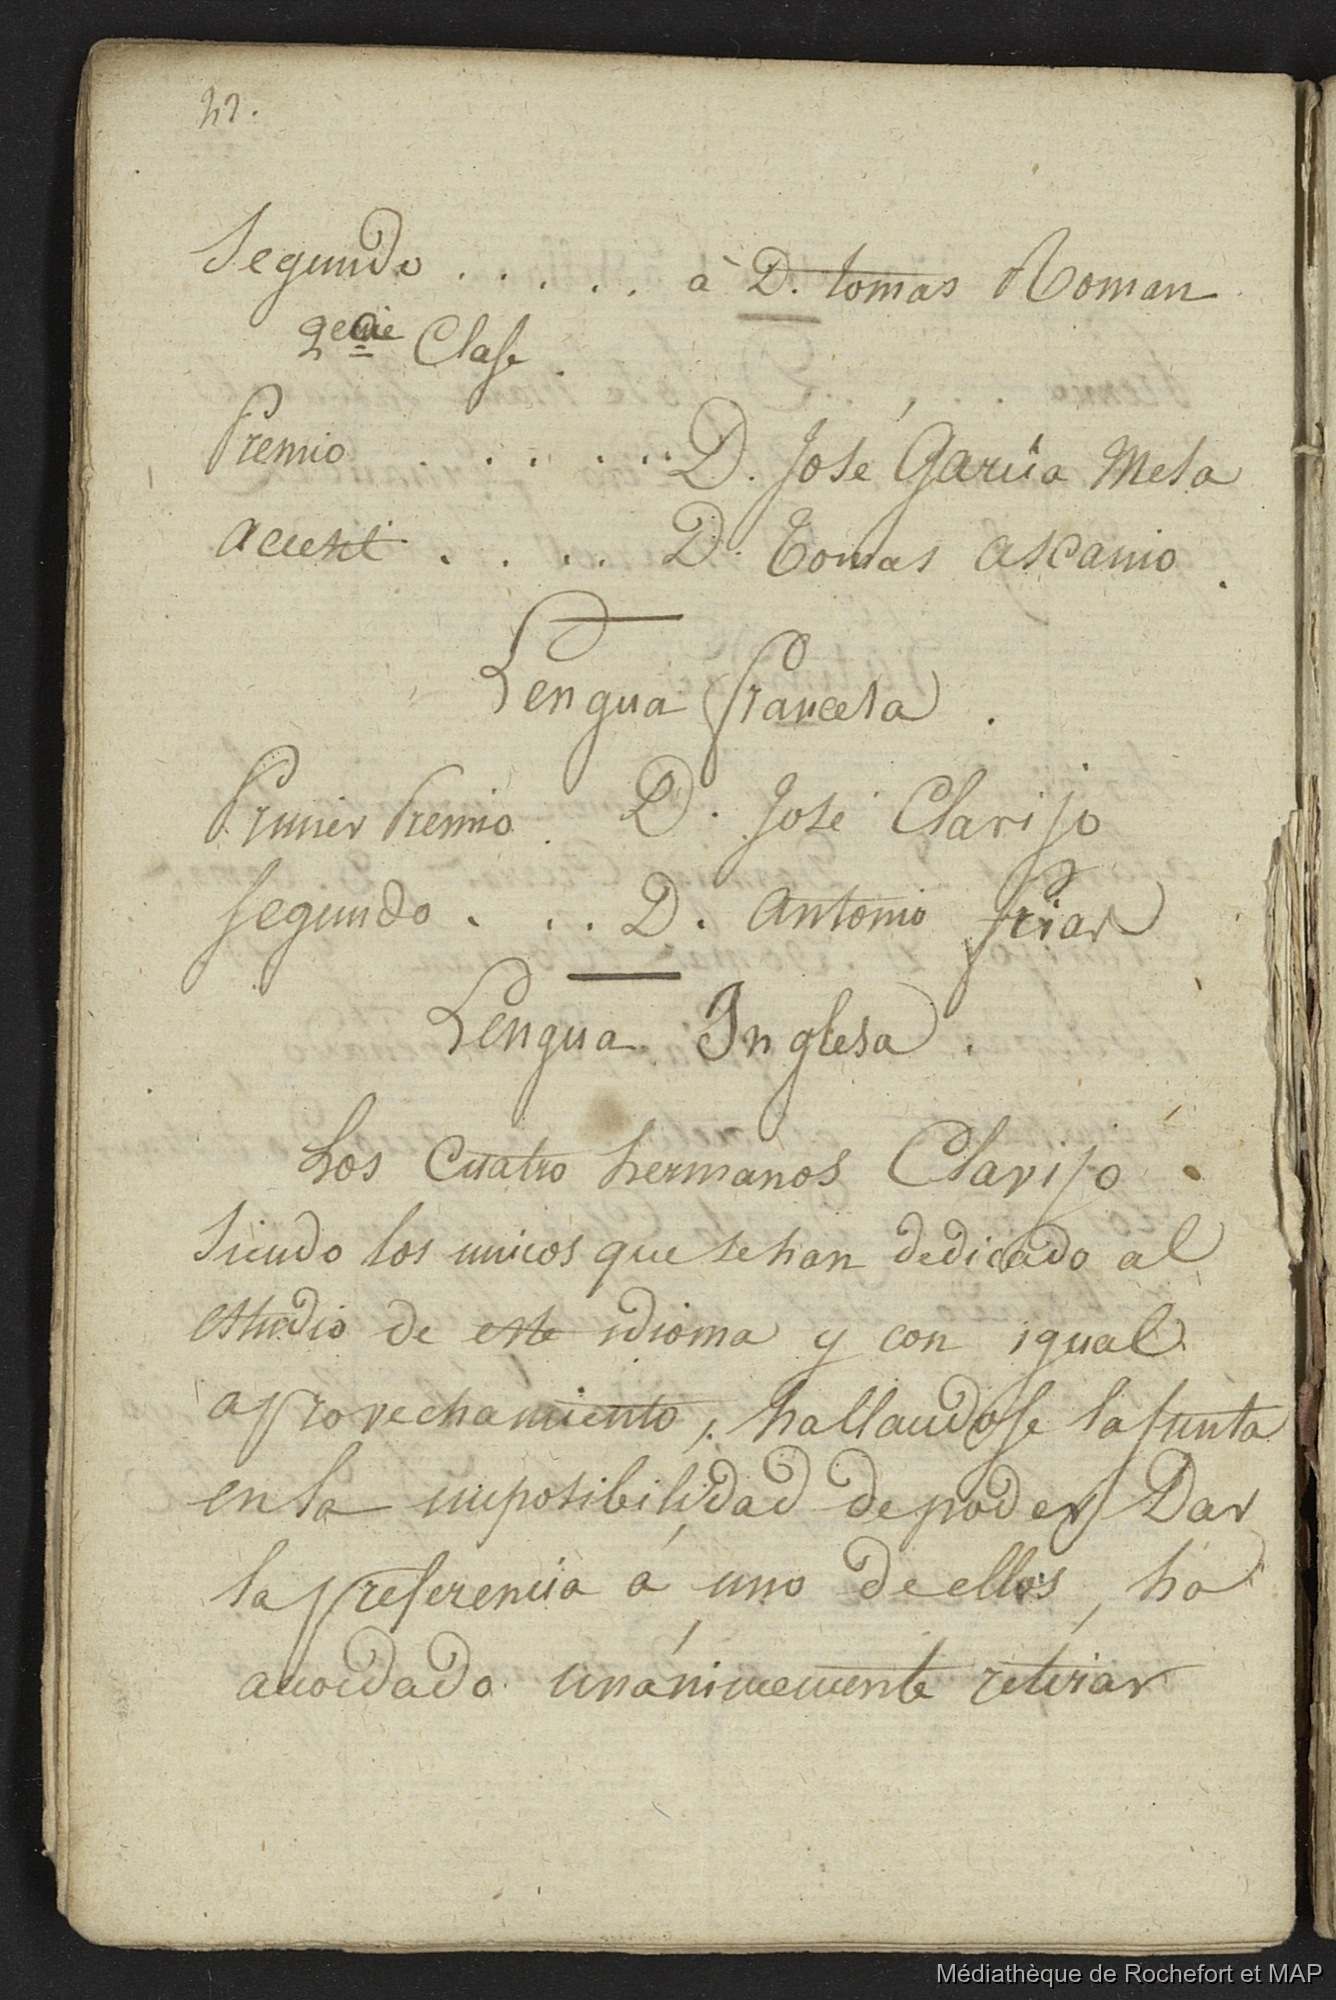 Segundo . . . . . . à D. tomas Roman
2a Clase.
Premio . . . . . . . D. José García Mesa
accesit . . . . . D. Tomas ascanio.
Lengua francesa.
Primer Premio . D. José Clavijo
segundo . . . D. antonio friar
Lengua Inglesa.
Los cuatro hermanos Clavijo
siendo los unicos que se han dedicado al
estudio de este idioma y con igual
aprovechamiento, hallandose la junta
en la imposibilidad de poder Dar
la preferencia á uno de ellos, ha
acordado unánimemente
Médiathèque de Rochefort et MAP